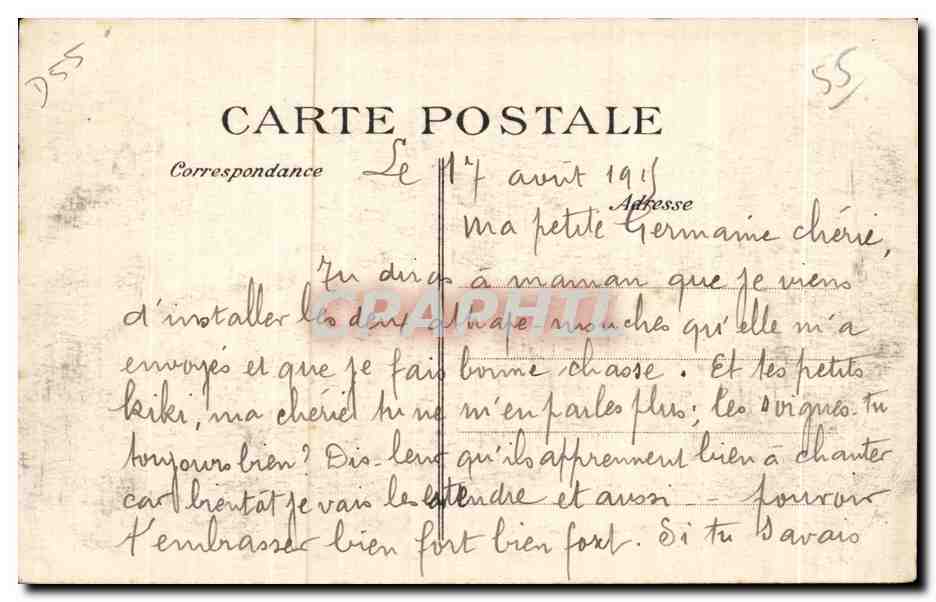 D55
55
CARTE POSTALE
Correspondance
Le 17 août 1915
Adresse
Ma petite Germaine chérie,
Tu diras à maman que je viens
d'installer les deux attrape-mouches qu'elle m'a
envoyés et que je fais bonne chasse. Et tes petits
kiki, ma chérie tu ne m'en parles plus; les soignes-tu
toujours bien? Dis-leur qu'ils apprennent bien à chanter
car bientôt je vais les entendre et aussi - pouvoir
t'embrasser bien fort bien fort. Si tu savais
CPAPHIL